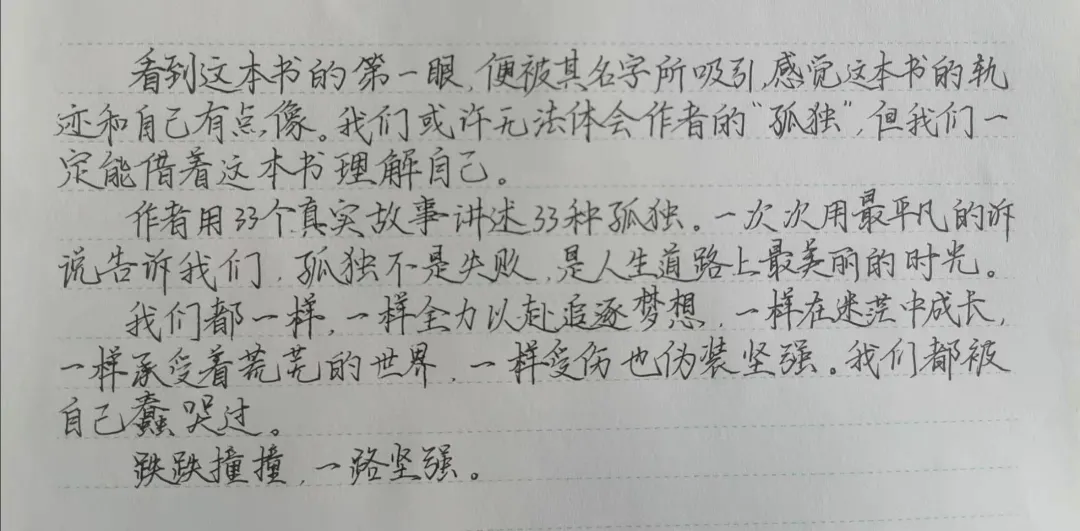 看到这本书的第一眼,便被其名字所吸引,感觉这本书的轨
迹和自己有点像。我们或许无法体会作者的“孤独”,但我们一
定能借着这本书理解自己。
作者用33个真实故事讲述33种孤独。一次次用最平凡的诉
说告诉我们,孤独不是失败,是人生道路上最美丽的时光。
我们都一样,一样全力以赴追逐梦想,一样在迷茫中成长,
一样承受着荒芜的世界,一样受伤也伪装坚强。我们都被
自己蠢哭过。
跌跌撞撞,一路坚强。